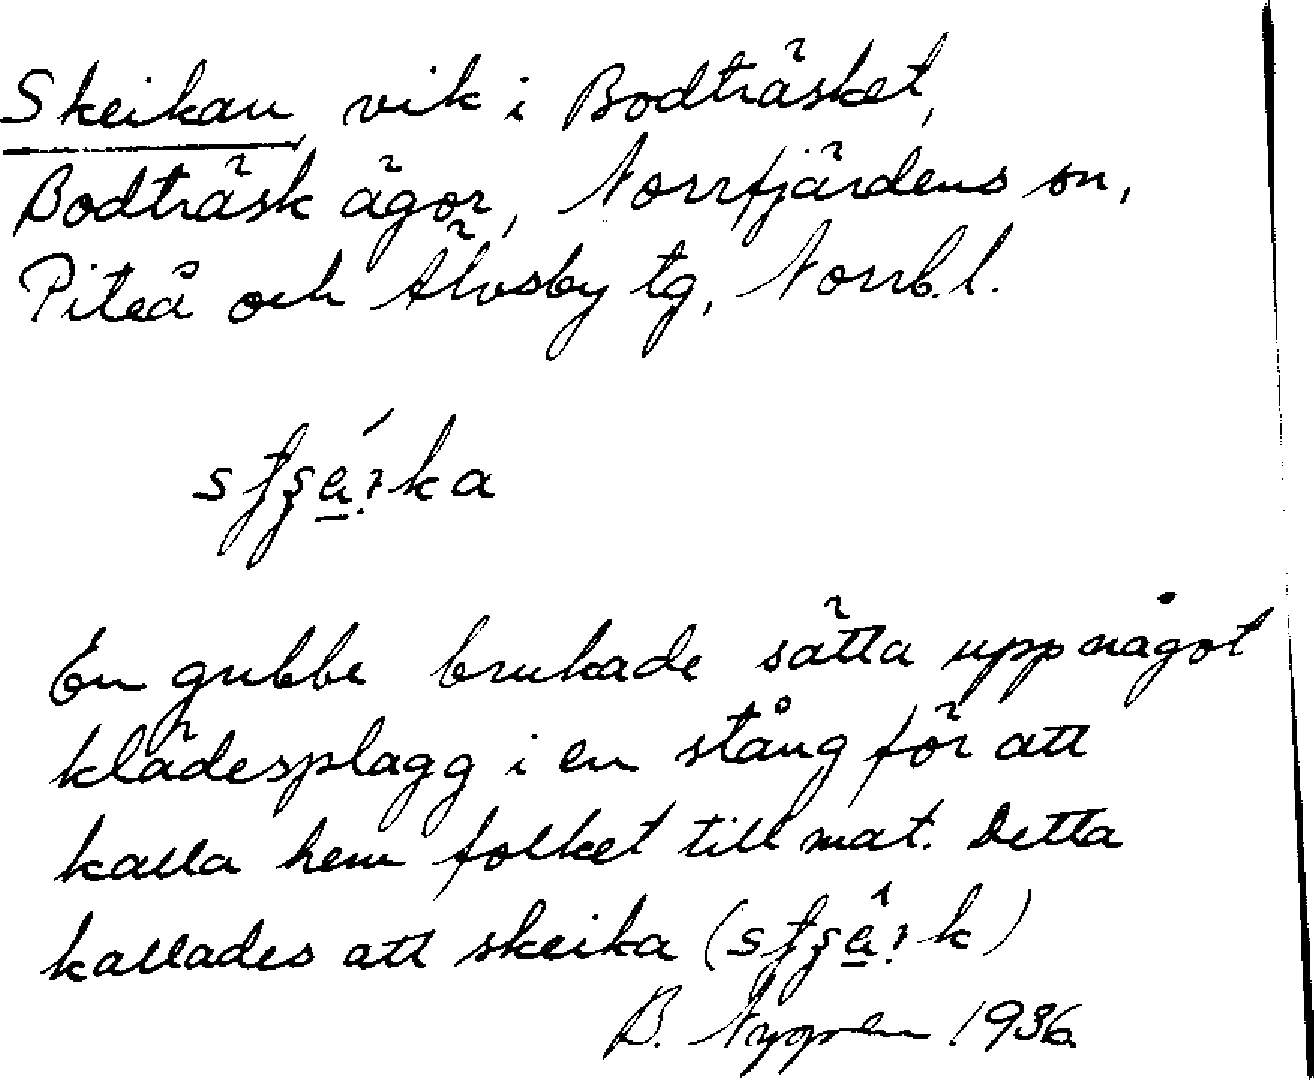 Skeikan, vik i Bodträsket,
Bodträsk ägor, Norrfjärdens sn,
Piteå och Älvsby tg, Norrb.l.
En gubbe brukade sätta upp något
klädesplagg i en stång för att
kalla hem folket till mat. Detta
kallades att skeika
B. Nygren 1936